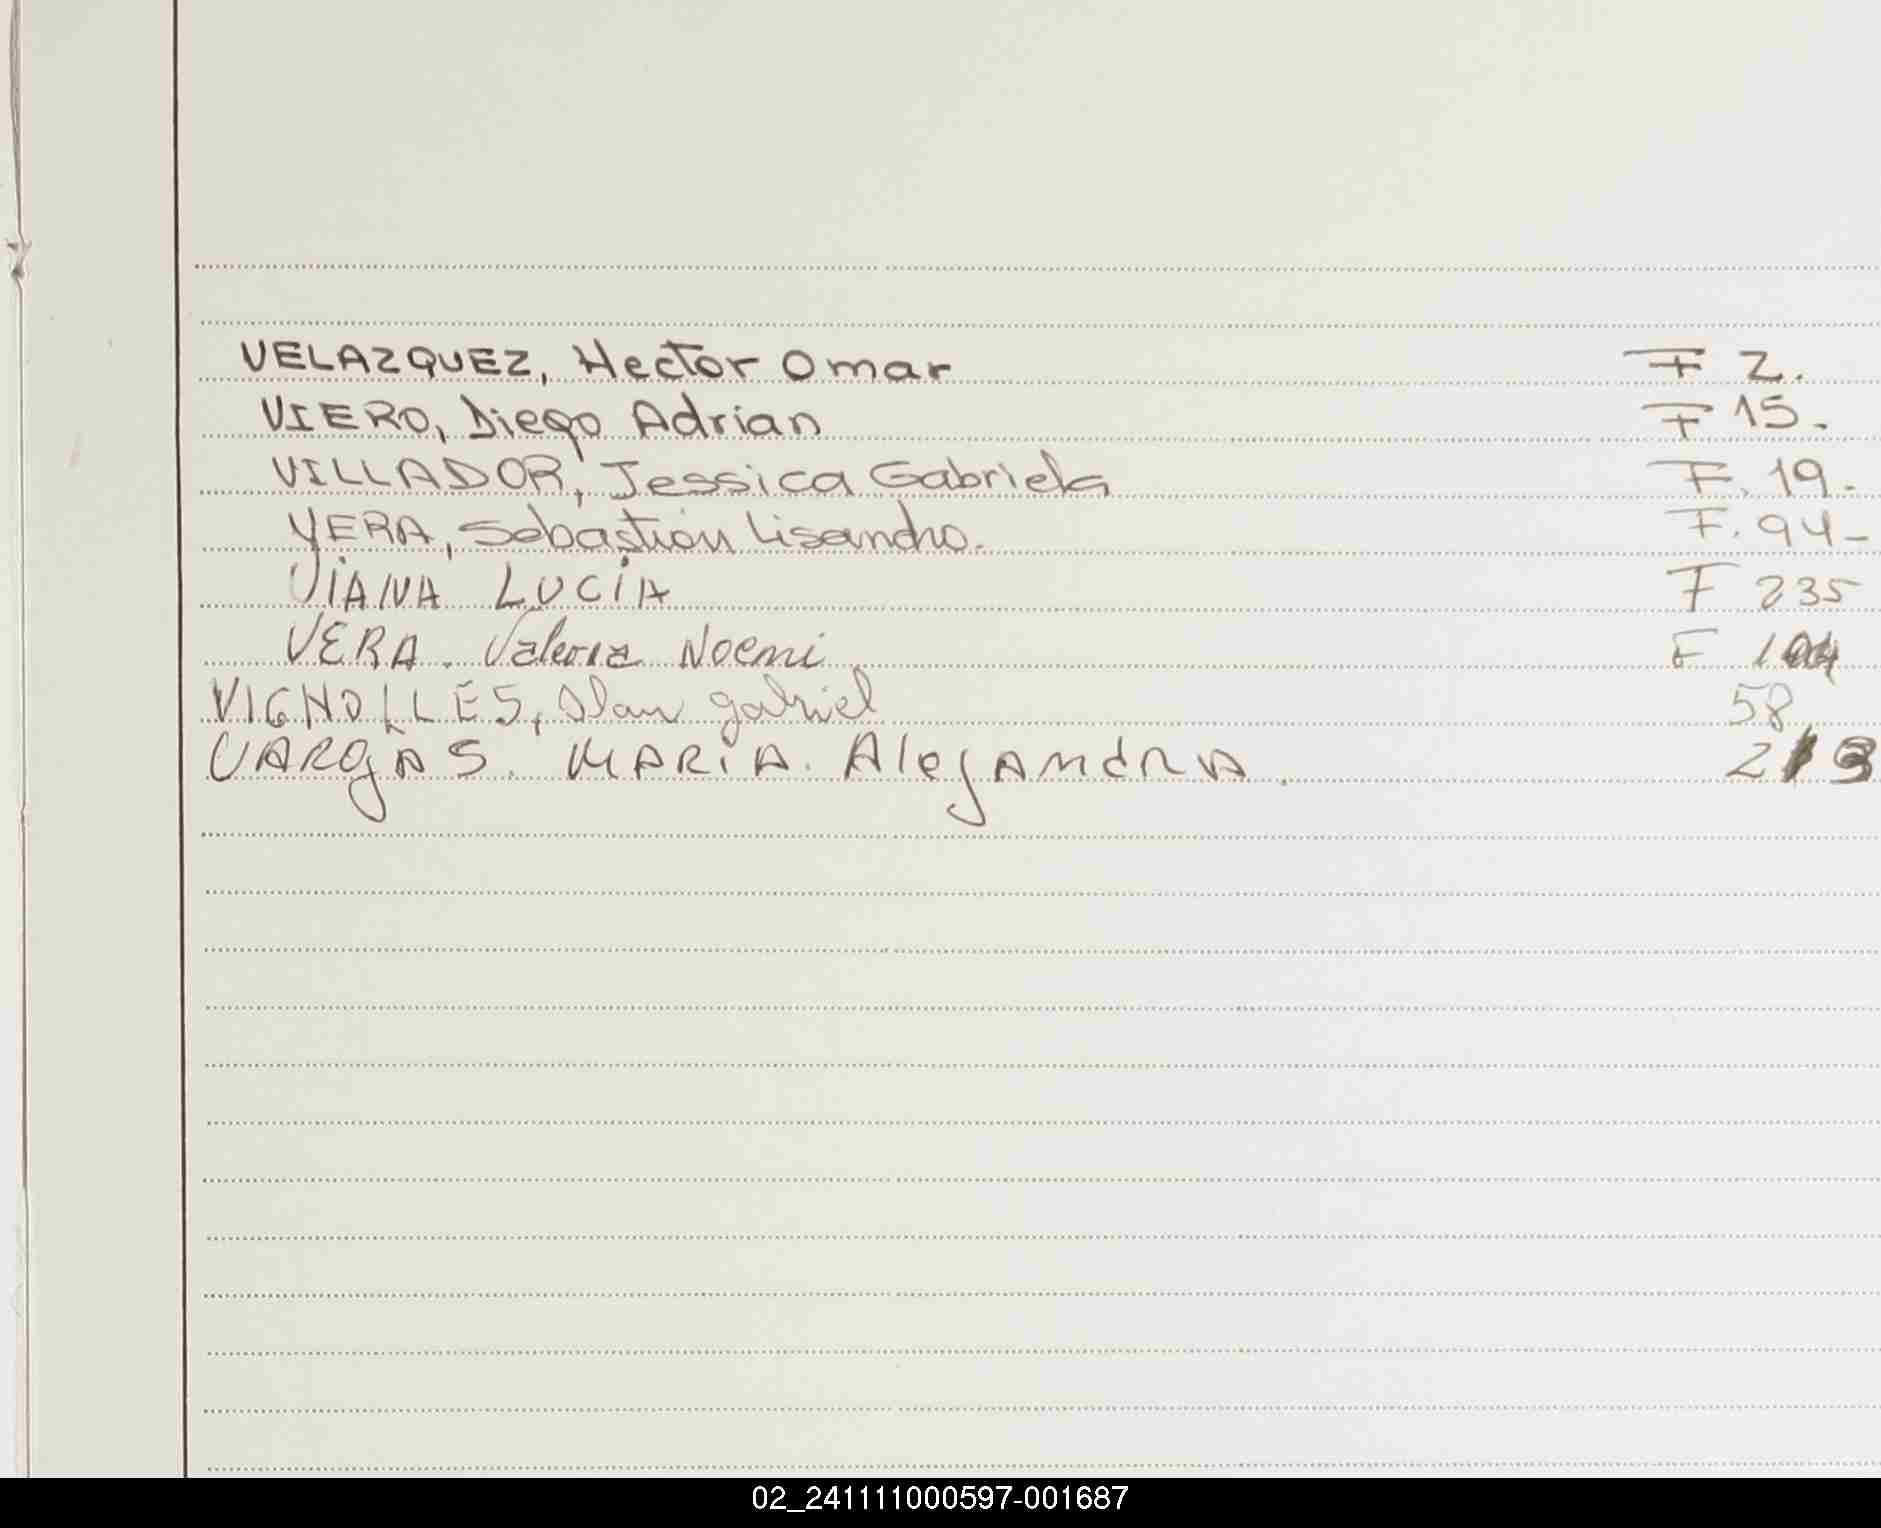 VELAZQUEZ, Hector Omar F 2.
VIERO, Diego Adrian F 15.
VILLADOR, Jessica Gabriela F. 19.
VERA, Sebastián Lisandro. F. 94-
VIANA LUCIA F 235
VERA. Valeria Noemi F
VIGNOLLES, Alan gabriel 58
VARgAS. MARIA. AlejANdRA.
02_241111000597-001687